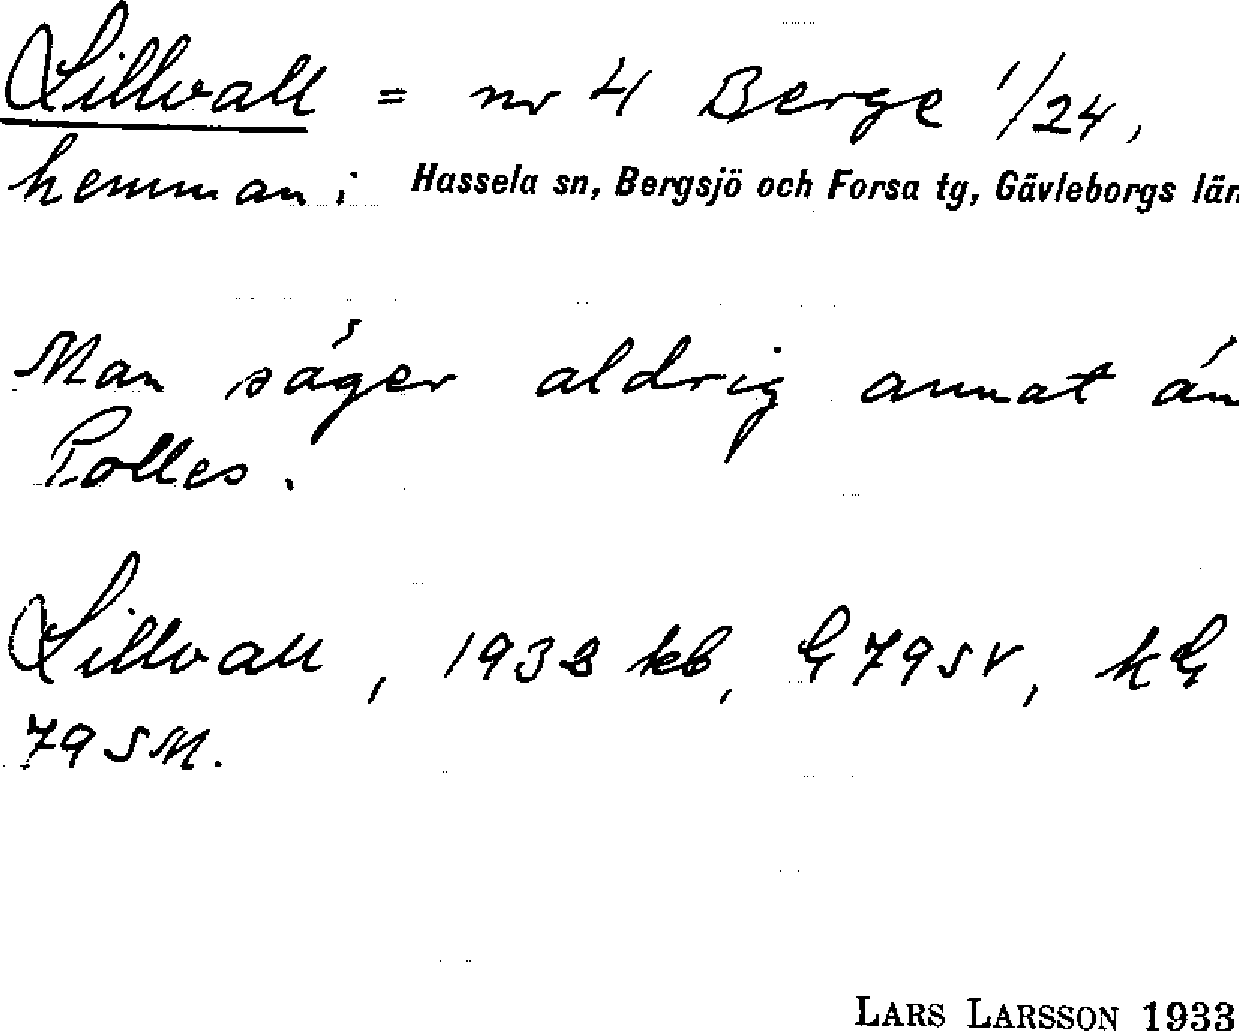 Lillvall = nr 4 Berge 1/24,
hemman i Hassela sn, Bergsjö och Forsa tg, Gävleborgs län
Man säger aldrig annat än
Polles.
Lillvall, 1933 kb, G79SV, kG
79SM.
LARS LARSSON 1933